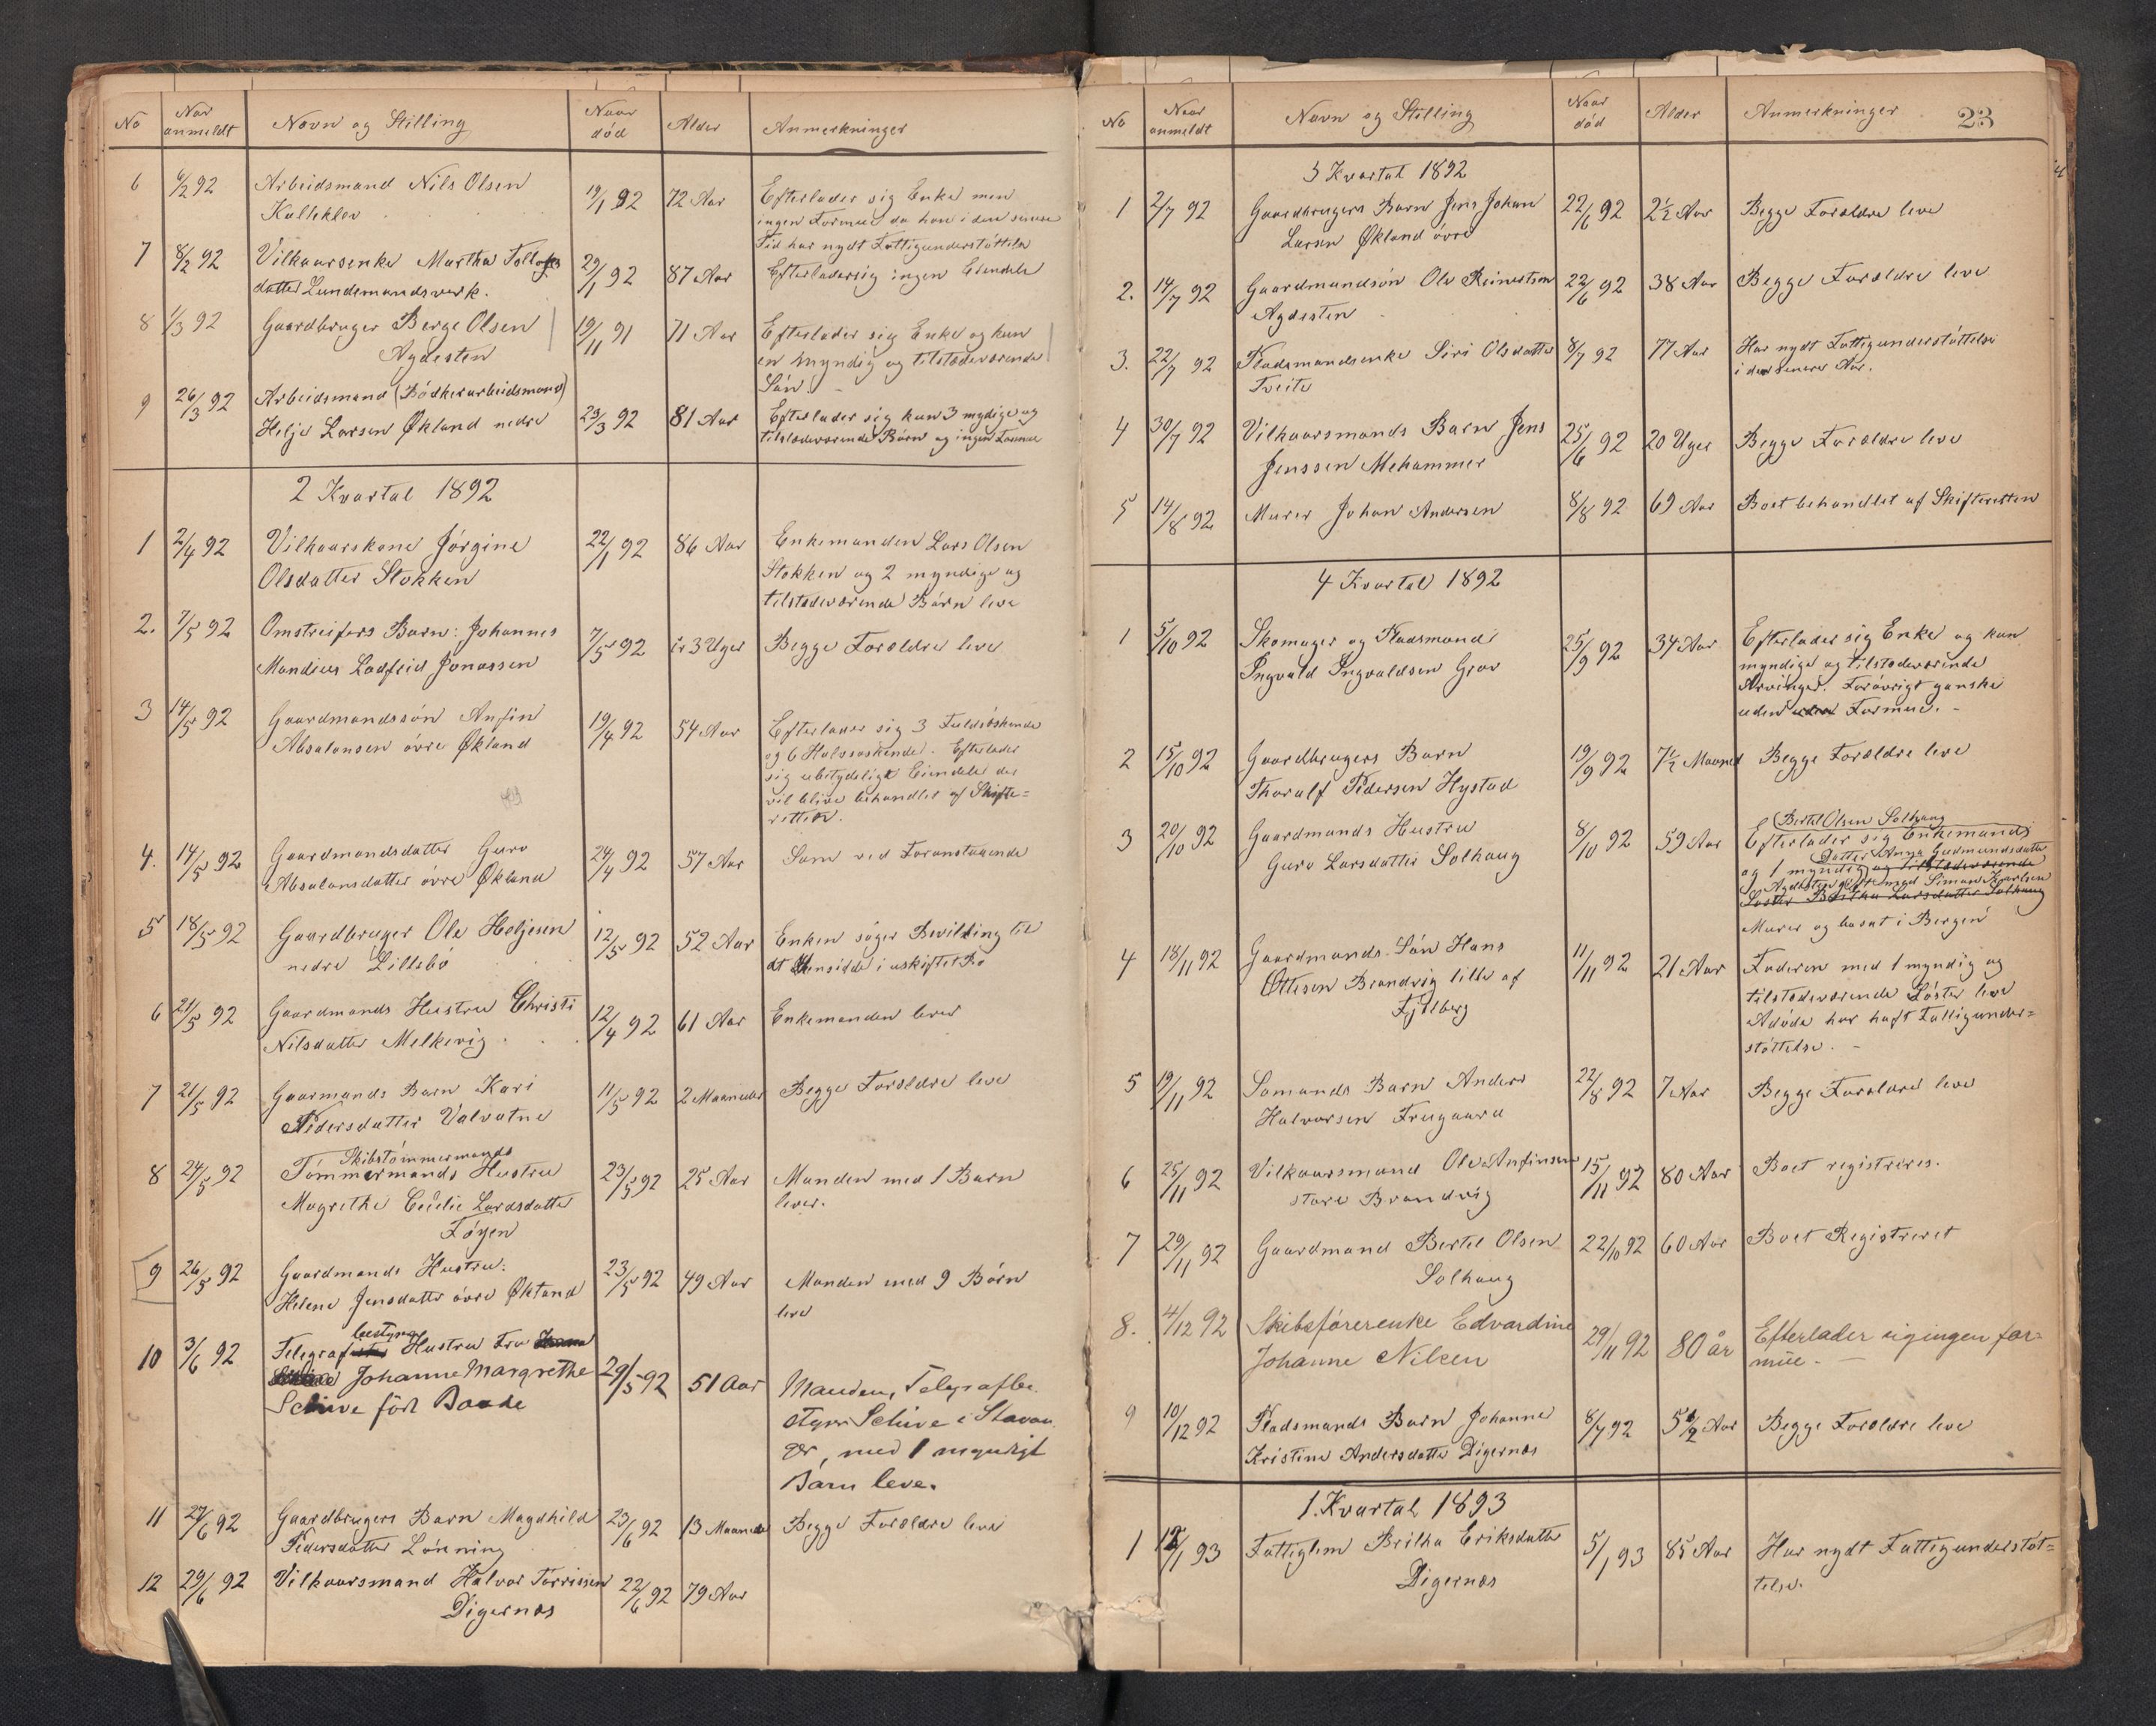 No | Naar anmeldt | Navn og Stilling | Naar död | Alder | Anmerkninger
6 | 6/2 92 | Arbeidsmand Nils Olsen | 19/1 92 | 72 Aar | Efterlader sig Enke men
Kalleklev | ingen Formue da han i den senere
Tid har nydt Fattigunderstöttelse
7 | 8/2 92 | Vilkaarsenke Martha Tollofs | 29/1 92 | 87 Aar | Efterlader sig ingen Eiendele
datter Lundsmandsverk.
8 | 1/3 92 | Gaardbruger Berge Olsen | 19/11 91 | 71 Aar | Efterlader sig Enke og kun
Agdesten | en myndig og tilstedeværende
Sön
9 | 26/3 92 | Arbeidsmand (Bödkerarbeidsmand)
Helje Larsen Økland nedre | 23/3 92 | 81 Aar | Efterlader sig kun 3 mydige og
tilstedeværende Börn og ingen Formue
2 Kvartal 1892
1 | 2/4 92 | Vilkaarskone Jörgine | 22/1 92 | 86 Aar | Enkemanden Lars Olsen
Olsdatter Stokken | Stokken og 2 myndige og
tilstedeværende Börn leve
2. | 7/5 92 | Omstreifers Barn: Johannes | 7/5 92 | 3 Uger | Begge Forældre leve
Mandius Ladfeid Jonassen
3 | 14/5 92 | Gaardmandssön Anfin | 19/4 92 | 54 Aar | Efterlader sig 3 Fuldsöskende
Absalonsen övre Økland | og 6 Halvsöskende. Efterlader
sig ubetydeligt Eiendele der
vil blive behandlet af Skifte=
retten.
4. | 14/5 92 | Gaardmandsdatter Guro | 24/4 92 | 57 Aar | Som ved Foranstaaende
Absalonsdatter övre Økland
5 | 18/5 92 | Gaardbruger Ole Heljesen | 12/5 92 | 52 Aar | Enken söger Bevilling til
nedre Lillebö | at hensidde i uskiftet Bo
6 | 21/5 92 | Gaardmands Hustru Christi | 12/4 92 | 61 Aar | Enkemanden lever
Nilsdatter Melkevig
7 | 21/5 92 | Gaarmands Barn Kari | 11/5 92 | 2 Maaneder | Begge Forældre leve
Pedersdatter Valvatne
Skibstömmermands
8 | 24/5 92 | Tömmermands Hustru | 23/5 92 | 25 Aar | Manden med 1 Barn
Magrethe Cecilie Lardsdatter | lever.
Föyen
9 | 26/5 92 | Gaardmands Hustru: | 23/5 92 | 49 Aar | Manden med 9 Börn
Helene Jensdatter övre Økland | leve
bestyrer
10 | 3/6 92 | Telegraf Hustru Fru
Johanne Margrethe | 29/5 92 | 51 Aar | Manden, Telegrafbe.
Schive föd Baade | styrer Schive i Stavan
ger, med 1 myndigt
Barn leve.
11 | 27/6 92 | Gaardbrugers Barn Magdhild | 23/6 92 | 13 Maaneder | Begge Forældre leve
Pedersdatter Lönning
12 | 29/6 92 | Vilkaarsmand Halvor Torrissen | 22/6 92 | 79 Aar
Digernæs
No | Naar anmeldt | Navn og Stilling | Naar död | Alder | Anmerkninger | 23
3 Kvartal 1892
1 | 2/7 92 | Gaardbrugers Barn Jens Johan | 22/6 92 | 2½ Aar | Begge Forældre leve
Larsen Økland övre
2. | 14/7 92 | Gaardmandsön Ole Reinertsen | 22/6 92 | 38 Aar | Begge Forældre leve
Agdesten
3. | 22/7 92 | Pladsmandsenke Siri Olsdatter | 8/7 92 | 77 Aar | Har nydt Fattigunderstöttelse
Tveite | i de senere Aar.
4 | 30/7 92 | Vilkaarsmands Barn Jens | 25/6 92 | 20 Uger | Begge Forældre leve
Jenssen Mehammer
5 | 14/8 92 | Murer Johan Andersen | 8/8 92 | 69 Aar | Boet behandlet af Skifteretten
4 Kvartal 1892
1 | 5/10 92 | Skomager og Pladsmand | 25/9 92 | 34 Aar | Efterlader sig Enke og kun
Ingvald Ingvaldsen Grov | myndige og tilstedeværende
Arvinger. Forövrigt ganske
uden Formue. -
2 | 15/10 92 | Gaardbrugers Barn | 19/9 92 | 7½ Maaned | Begge Forældre leve
Thoralf Pedersen Hystad
Bertel Olsen Solhaug
3 | 20/10 92 | Gaardmands Hustru | 8/10 92 | 59 Aar | Efterlader sig Enkemand
Guro Larsdatter Solhaug | Datter Anna Gudmundsdatter
og 1 myndig og tilstedeværende
Agdesten gift med Simon Karlsen
Söster Britha Larsdatter Solhaug
Murer og bosat i Bergen
4 | 18/11 92 | Gaardmands Sön Hans | 11/11 92 | 21 Aar | Faderen med 1 myndig og
Ottesen Brandvig lille af | tilstedeværende Söster leve
Fjelberg | Adöde har haft Fattigunder=
stöttelse. -
5 | 19/11 92 | Sömands Barn Anders | 22/8 92 | 7 Aar | Begge Forældre leve
Halvorsen Frugaard
6 | 25/11 92 | Vilkaarsmand Ole Anfinsen | 15/11 92 | 80 Aar | Boet registreres.
store Brandvig
7 | 29/11 92 | Gaardmand Bertel Olsen | 22/10 92 | 60 Aar | Boet Registreret
Solhaug
8. | 4/12 92 | Skibsförerenke Edvardine | 29/11 92 | 80 år | Efterlader sig ingen for=
Johanne Nilsen | mue. -
9 | 10/12 92 | Pladsmands Barn Johanne | 8/7 92 | 5½ Aar | Begge Forældre leve
Kristine Andersdatter Digernæs
1. Kvartal 1893
1 | 12/1 93 | Fattiglem Britha Eriksdatter | 5/1 93 | 85 Aar | Har nydt Fattigunderstöt=
Digernæs | telse.